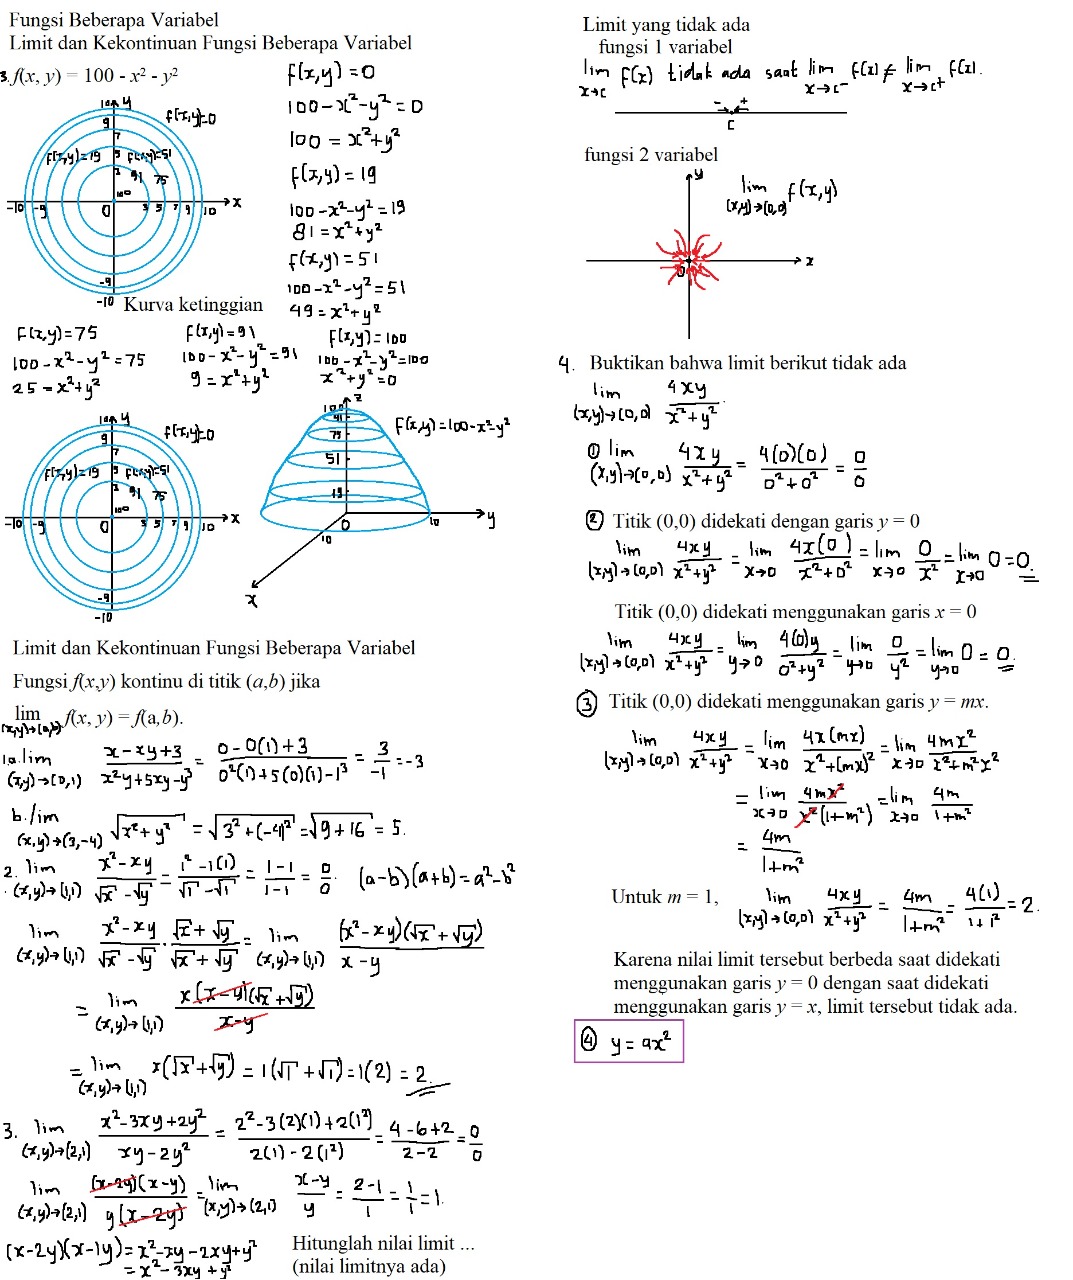 Fungsi Beberapa Variabel
Limit dan Kekontinuan Fungsi Beberapa Variabel
3. f(x, y) = 100 - x² - y²
f(x,y)=0
100-x²-y²=0
100 = x²+y²
f(x,y)=19
100-x²-y²=19
81=x²+y²
f(x,y)=51
100-x²-y²=51
49=x²+y²
10 y
9
7
5
f(x,y)=0
f(x,y)=19
f(x,y)=51
91 75
100
-10 -9 0 3 5 7 9 10 x
-9
-10
Kurva ketinggian
f(x,y)=75
100-x²-y²=75
25=x²+y²
f(x,y)=91
100-x²-y²=91
9=x²+y²
f(x,y)=100
100-x²-y²=100
x²+y²=0
10 y
9
7
5
f(x,y)=0
f(x,y)=19
f(x,y)=51
91 75
100
-10 -9 0 3 5 7 9 10 x
-9
-10
z
100
91
75
51
19
0
10
10
y
x
f(x,y)=100-x²-y²
Limit dan Kekontinuan Fungsi Beberapa Variabel
Fungsi f(x,y) kontinu di titik (a,b) jika
lim (x,y)→(a,b) f(x, y) = f(a,b).
1.a. lim (x,y)→(0,1) (x-xy+3)/(x²y+5xy-y³) = (0-0(1)+3)/(0²(1)+5(0)(1)-1³) = 3/-1 = -3
b. lim (x,y)→(3,-4) √(x²+y²) = √(3²+(-4)²) = √(9+16) = 5.
2. lim (x,y)→(1,1) (x²-xy)/(√x-√y) = (1²-1(1))/(√1-√1) = (1-1)/(1-1) = 0/0. (a-b)(a+b)=a²-b²
lim (x,y)→(1,1) (x²-xy)/(√x-√y) · (√x+√y)/(√x+√y) = lim (x,y)→(1,1) (x²-xy)(√x+√y)/(x-y)
= lim (x,y)→(1,1) x(x-y)(√x+√y)/(x-y)
= lim (x,y)→(1,1) x(√x+√y) = 1(√1+√1) = 1(2) = 2.
3. lim (x,y)→(2,1) (x²-3xy+2y²)/(xy-2y²) = (2²-3(2)(1)+2(1²))/(2(1)-2(1²)) = (4-6+2)/(2-2) = 0/0
lim (x,y)→(2,1) (x-2y)(x-y)/(y(x-2y)) = lim (x,y)→(2,1) (x-y)/y = (2-1)/1 = 1/1 = 1.
(x-2y)(x-1y) = x²-xy-2xy+y²
= x²-3xy+y²
Hitunglah nilai limit ...
(nilai limitnya ada)
Limit yang tidak ada
fungsi 1 variabel
lim x→c f(x) tidak ada saat lim x→c⁻ f(x) ≠ lim x→c⁺ f(x).
- +
c
fungsi 2 variabel
y
lim (x,y)→(0,0) f(x,y)
x
0
4. Buktikan bahwa limit berikut tidak ada
lim (x,y)→(0,0) 4xy/(x²+y²).
① lim (x,y)→(0,0) 4xy/(x²+y²) = 4(0)(0)/(0²+0²) = 0/0
② Titik (0,0) didekati dengan garis y = 0
lim (x,y)→(0,0) 4xy/(x²+y²) = lim x→0 4x(0)/(x²+0²) = lim x→0 0/x² = lim x→0 0 = 0.
Titik (0,0) didekati menggunakan garis x = 0
lim (x,y)→(0,0) 4xy/(x²+y²) = lim y→0 4(0)y/(0²+y²) = lim y→0 0/y² = lim y→0 0 = 0.
③ Titik (0,0) didekati menggunakan garis y = mx.
lim (x,y)→(0,0) 4xy/(x²+y²) = lim x→0 4x(mx)/(x²+(mx)²) = lim x→0 4mx²/(x²+m²x²)
= lim x→0 4mx²/(x²(1+m²)) = lim x→0 4m/(1+m²)
= 4m/(1+m²)
Untuk m = 1, lim (x,y)→(0,0) 4xy/(x²+y²) = 4m/(1+m²) = 4(1)/(1+1²) = 2.
Karena nilai limit tersebut berbeda saat didekati
menggunakan garis y = 0 dengan saat didekati
menggunakan garis y = x, limit tersebut tidak ada.
④ y = ax²